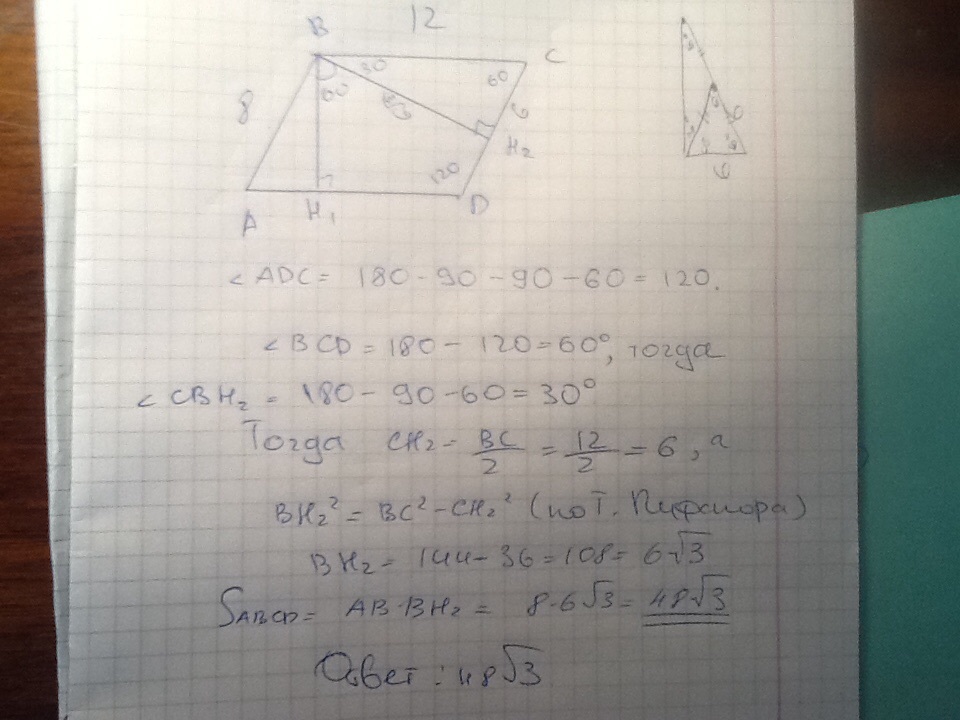 12
B
C
30
60
60
8
6
H₂
120
A
H₁
D
6
6
∠ADC = 180 - 90 - 90 - 60 = 120.
∠BCD = 180 - 120 = 60°, тогда
∠CBH₂ = 180 - 90 - 60 = 30°
Тогда CH₂ = BC/2 = 12/2 = 6, а
BH₂² = BC² - CH₂² (по т. Пифагора)
BH₂ = 144 - 36 = 108 = 6√3
SABCD = AB·BH₂ = 8·6√3 = 48√3
Ответ: 48√3